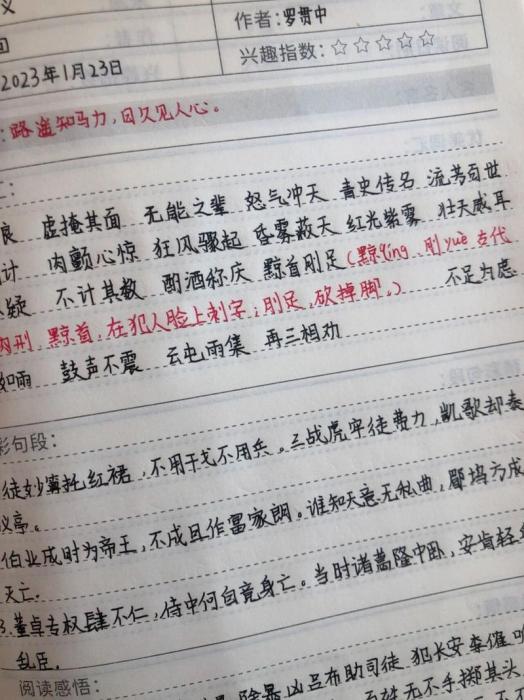 义
作者：罗贯中
间
兴趣指数：☆☆☆☆☆
2023年1月23日
：路遥知马力，日久见人心。
良 虚掩其面 无能之辈 怒气冲天 青史传名 流芳百世
计 肉颤心惊 狂风骤起 昏雾蔽天 红光紫雾 壮天威耳
疑 不计其数 酹酒称庆 黥首刖足(黥qíng 刖yuè 古代
肉刑 黥首，在犯人脸上刺字；刖足，砍掉脚。) 不足为虑
如雨 鼓声不震 云屯雨集 再三相劝
彩句段：
徒妙算托红裙，不用干戈不用兵。三战虎牢徒费力，凯歌却奏
仪亭。
伯业成时为帝王，不成且作富家郎。谁知天意无私曲，郿坞方成
灭亡。
3.董卓专权肆不仁，侍中何自竟身亡。当时诸葛隆中卧，安肯轻
乱臣。
阅读感悟：
除暴凶吕布助司徒 犯长安李傕
无不手掷其头